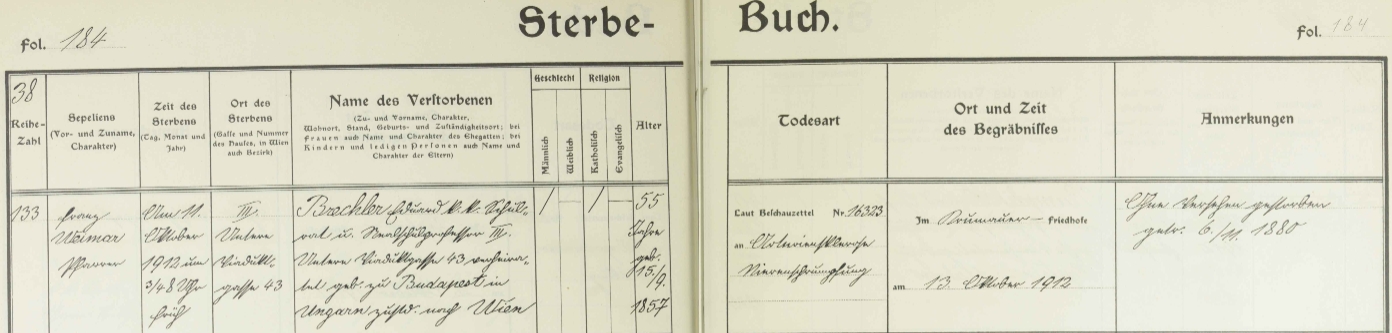 Sterbe-
Buch.
Fol. 184
Fol. 184
38
Reihe-
Zahl
Sepeliens
(Vor- und Zuname,
Charakter)
Zeit des
Sterbens
(Tag, Monat und
Jahr)
Ort des
Sterbens
(Gasse und Nummer
des Hauses, in Wien
auch Bezirk)
Name des Verstorbenen
(Zu- und Vorname, Charakter,
Wohnort, Stand, Geburts- und Zuständigkeitsort; bei
Frauen auch Name und Charakter des Ehegatten; bei
Kindern und ledigen Personen auch Name und
Charakter der Eltern)
Geschlecht
Männlich
Weiblich
Religion
Katholisch
Evangelisch
Alter
Todesart
Ort und Zeit
des Begräbnisses
Anmerkungen
133
Franz
Weimar
Pfarrer
Am 11.
Oktober
1912 um
3/4 8 Uhr
früh
III.
Untere
Viadukt-
gasse 43
Brechler Eduard k. k. Schul-
rat u. Realschulprofessor III.
Untere Viaduktgasse 43 verheira-
tet geb. zu Budapest in
Ungarn zustd. nach Wien
/
/
55
Jahre
geb.
15./9.
1857
Laut Beschauzettel Nr. 16323
an Arteriensklerose
Nierenschrumpfung
Im Friedhofe
am 13. Oktober 1912
Ohne Versehen gestorben
getr. 6./11. 1880